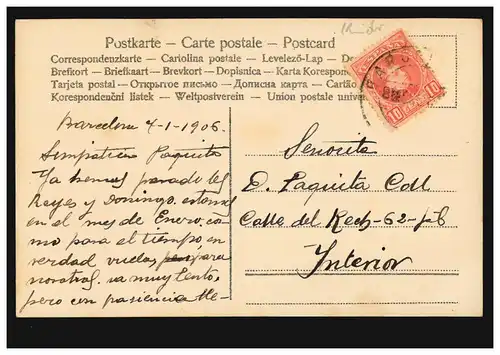 Postkarte – Carte postale – Postcard
Correspondenzkarte – Cartolina postale – Levelező-Lap –
Brefkort – Briefkaart – Brevkort – Dopisnica – Karta
Tarjeta postal – Открытое письмо – Дописна карта – Cartão
Korespondenční lístek – Weltpostverein – Union postale
10 10
Barcelona 7-1-1906.
Simpática Paquita
Ya hemos pasado los
Reyes y Domingo, estamos
en el mes de Enero, co-
mo para el tiempo, en
verdad vuela, para
nosotros va muy lento,
pero con pasiencia lle-
Señorita
D. Paquita Coll
Calle del Rech-62-
Interior